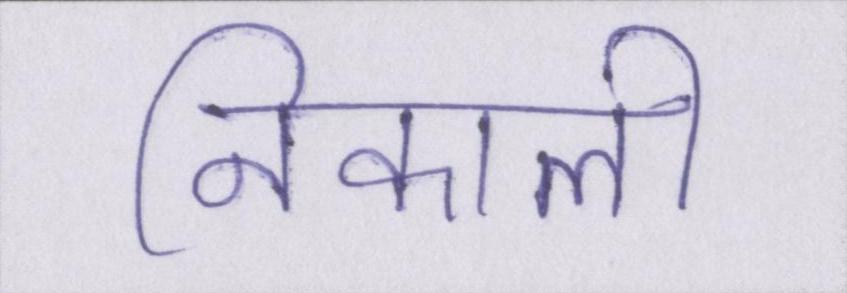 निकाली